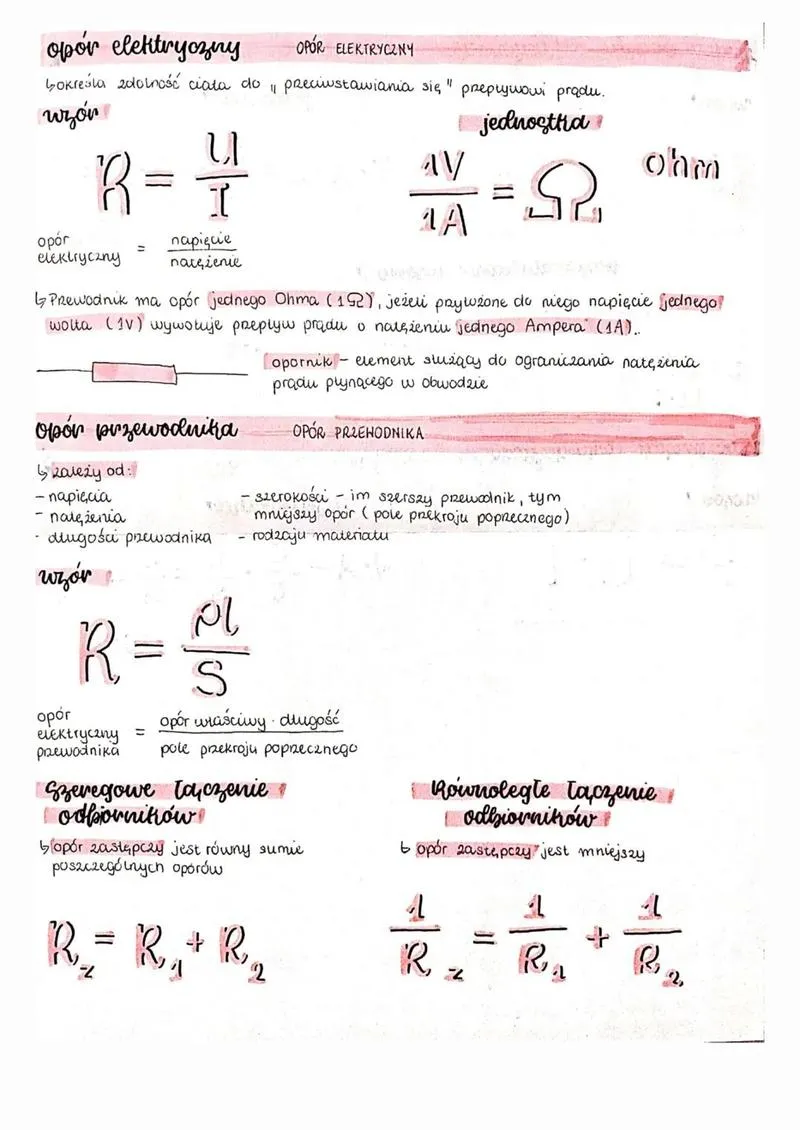 opór elektryczny OPÓR ELEKTRYCZNY
↳ określa zdolność ciała do „przeciwstawiania się" przepływowi prądu.
wzór
jednostka
R = U/I
1V/1A = Ω ohm
opór elektryczny = napięcie/natężenie
↳ Przewodnik ma opór jednego Ohma (1Ω), jeżeli przyłożone do niego napięcie jednego
wolta (1V) wywołuje przepływ prądu o natężeniu jednego Ampera (1A).
opornik – element służący do ograniczania natężenia
prądu płynącego w obwodzie
opór przewodnika OPÓR PRZEWODNIKA
↳ zależy od:
- napięcia
- natężenia
- długości przewodnika
- szerokości – im szerszy przewodnik, tym
mniejszy opór (pole przekroju poprzecznego)
- rodzaju materiału
wzór
R = ρl/S
opór elektryczny przewodnika = opór właściwy · długość/pole przekroju poprzecznego
Szeregowe łączenie
odbiorników
↳ opór zastępczy jest równy sumie
poszczególnych oporów
Rz = R1 + R2
Równoległe łączenie
odbiorników
↳ opór zastępczy jest mniejszy
1/Rz = 1/R1 + 1/R2